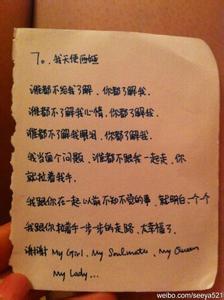 7。我天使西娅
谁都不给我了解，你都了解我.
谁都不了解我心情，你都了解.
谁都不了解我眼泪，你都了解我.
我当面个问题，谁都不跟我一起走，你
就拉着我手.
我跟你在一起以前不知不觉的事，就明白一个个
我跟你拉着手一步步的走路，太幸福了.
谢谢 My Girl, My Soulmate, My Queen
My Lady...
weibo.com/seeya521